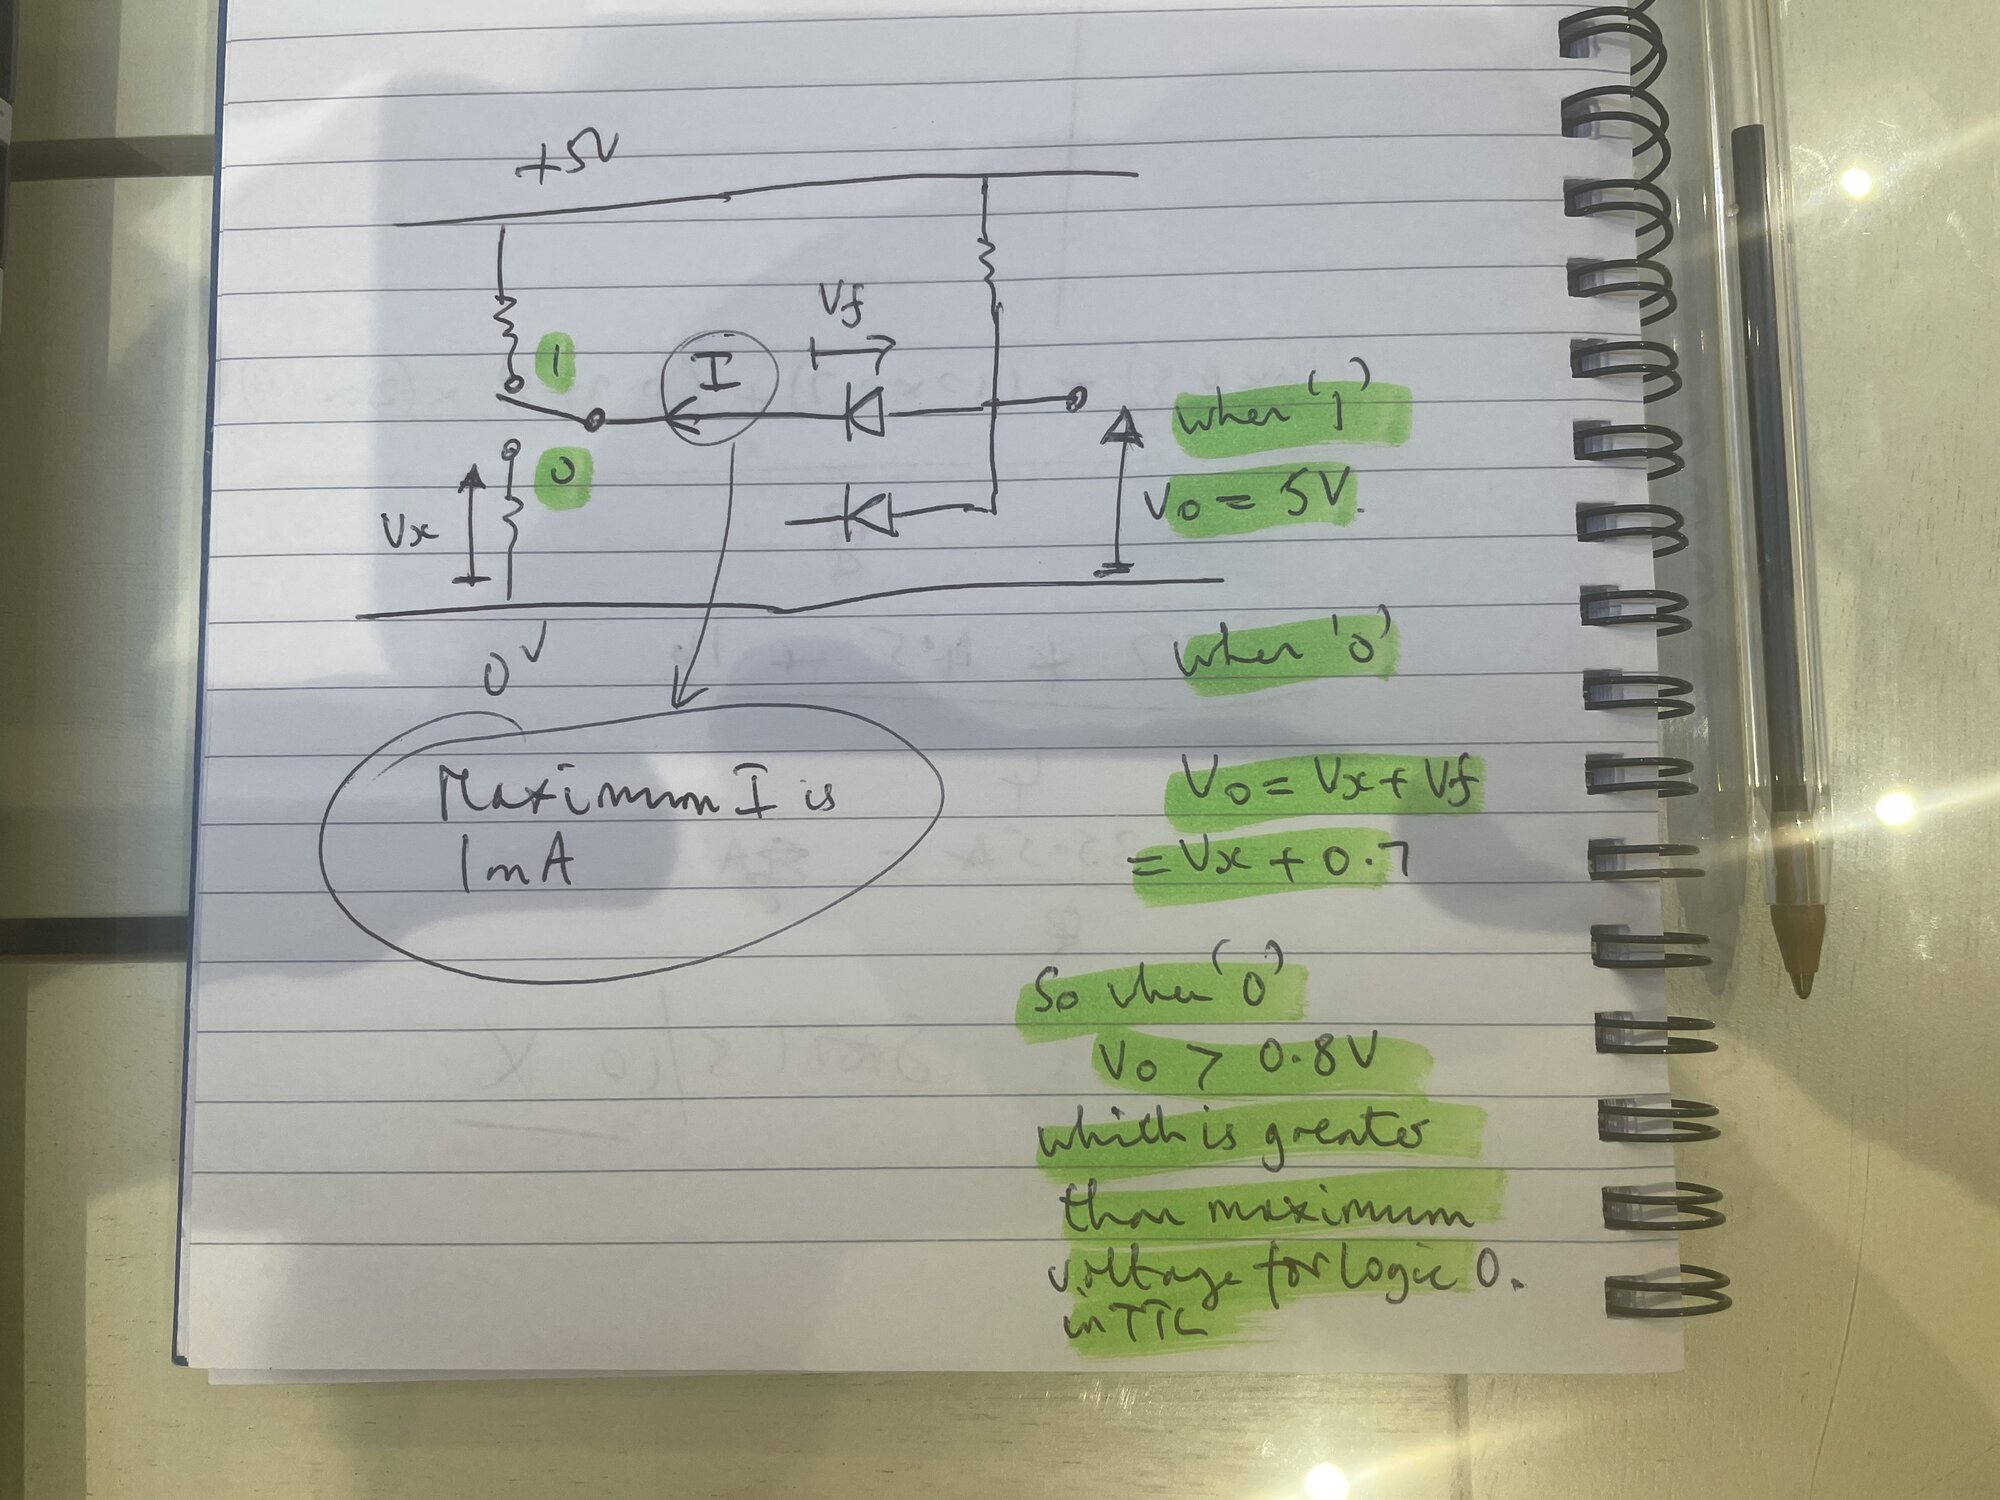 +5V
Vf
1
I
when '1'
0
Vx
Vo = 5V.
0V
when '0'
Maximum I is
1mA
Vo = Vx + Vf
= Vx + 0.7
So when '0'
Vo > 0.8V
which is greater
than maximum
voltage for logic 0.
in TTL